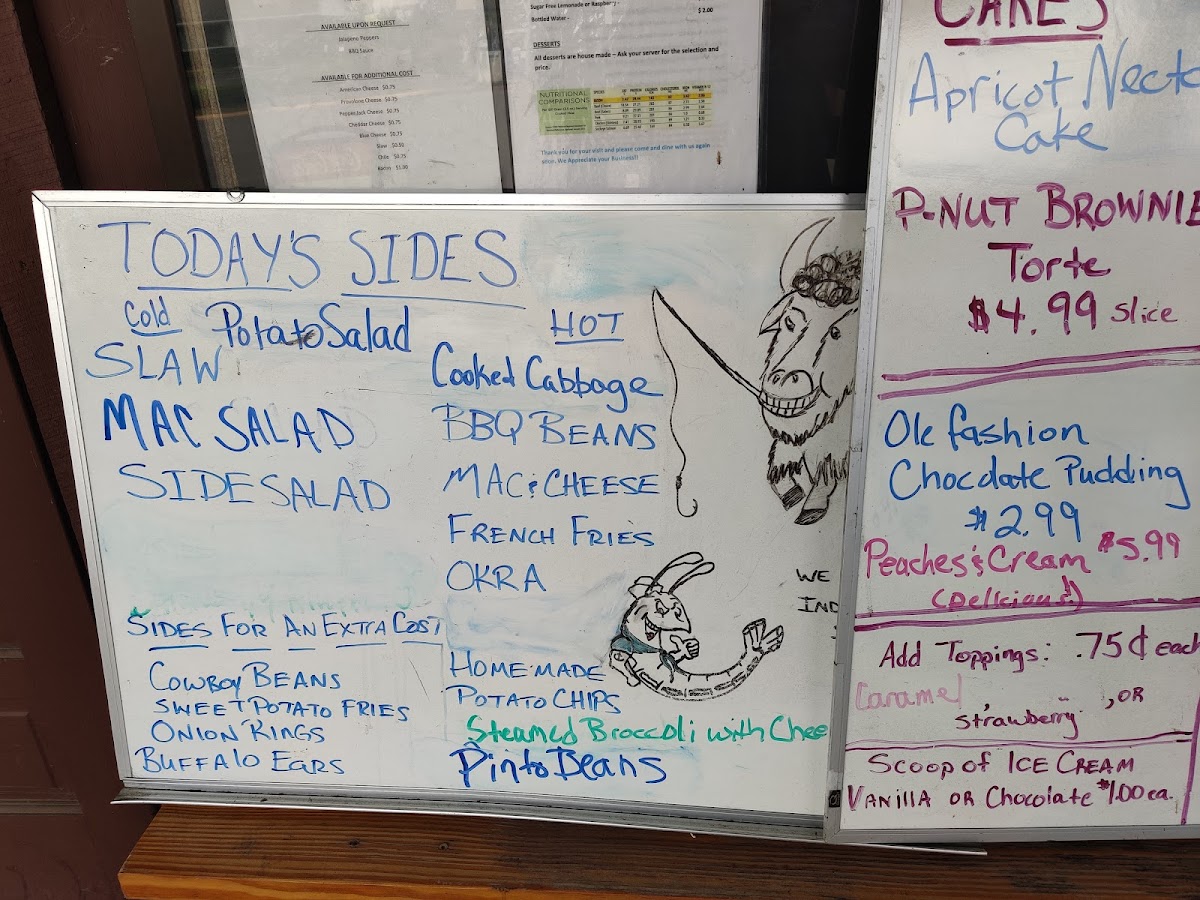 AVAILABLE UPON REQUEST
Jalapeno Peppers
BBQ Sauce
AVAILABLE FOR ADDITIONAL COST
American Cheese $0.75
Provolone Cheese $0.75
PepperJack Cheese $0.75
Cheddar Cheese $0.75
Blue Cheese $0.75
Slaw $0.50
Chile $0.75
Bacon $1.00
Sugar Free Lemonade or Raspberry -
Bottled Water - $ 2.00
DESSERTS
All desserts are house made – Ask your server for the selection and
price.
NUTRITIONAL
COMPARISONS
Thank you for your visit and please come and dine with us again
soon. We Appreciate your Business!!
TODAY'S SIDES
Cold
Potato Salad
SLAW
MAC SALAD
SIDE SALAD
HOT
Cooked Cabbage
BBQ BEANS
MAC & CHEESE
FRENCH FRIES
OKRA
SIDES FOR AN EXTRA COST
COWBOY BEANS
SWEET POTATO FRIES
ONION RINGS
BUFFALO EARS
HOMEMADE
POTATO CHIPS
Steamed Broccoli with Chee
Pinto Beans
WE
IND
CAKES
Apricot Necta
Cake
P-NUT BROWNIE
Torte
$4.99 Slice
Ole fashion
Chocolate Pudding
$2.99
Peaches & Cream $5.99
(Delicious!)
Add Toppings: .75¢ each
Caramel, , OR
Strawberry
Scoop of ICE CREAM
VANILLA OR Chocolate $1.00 ea.